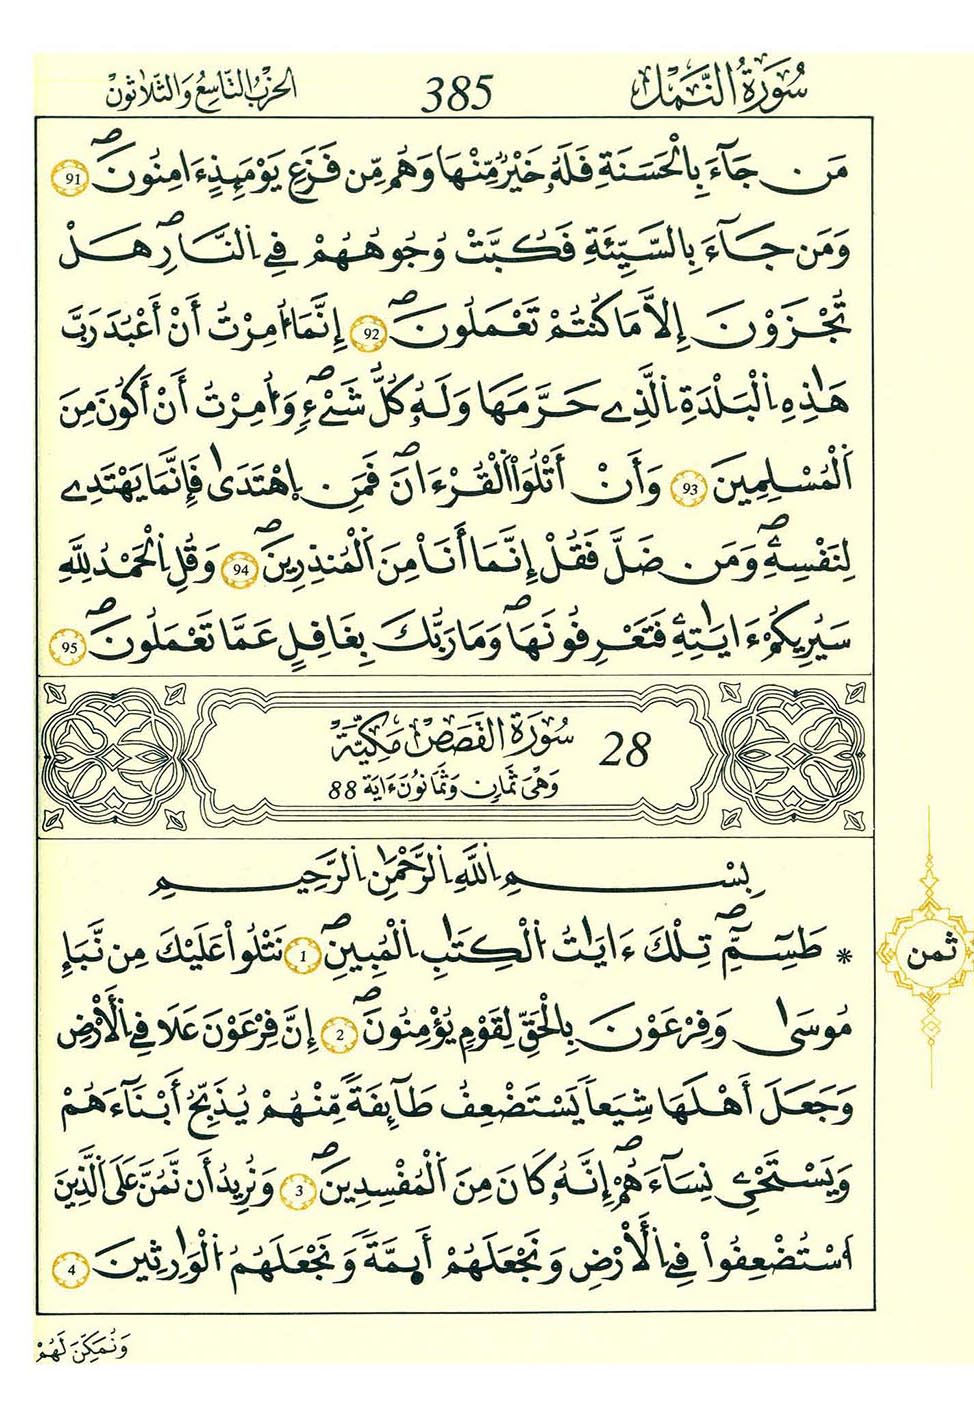 سُورَةُ النَّمْلِ 385 الحِزْبُ التَّاسِعُ وَالثَّلَاثُونَ
مَن جَآءَ بِالْحَسَنَةِ فَلَهُۥ خَيْرٌ مِّنْهَا وَهُم مِّن فَزَعِ يَوْمَئِذٍ ءَامِنُونَۖ 91
وَمَن جَآءَ بِالسَّيِّئَةِ فَكُبَّتْ وُجُوهُهُمْ فِے اِ۬لنَّارِۖ هَلْ
تُجْزَوْنَ إِلاَّ مَا كُنتُمْ تَعْمَلُونَۖ 92 إِنَّمَا أُمِرْتُ أَنْ أَعْبُدَ رَبَّ
هَٰذِهِ اِ۬لْبَلْدَةِ اِ۬لَّذِے حَرَّمَهَا وَلَهُۥ كُلُّ شَےْءٍۖ وَأُمِرْتُ أَنْ أَكُونَ مِنَ
اَ۬لْمُسْلِمِينَ 93 وَأَنْ أَتْلُوَاْ اُ۬لْقُرْءَانَۖ فَمَنِ اِ۪هْتَدَىٰ فَإِنَّمَا يَهْتَدِے
لِنَفْسِهِۦۖ وَمَن ضَلَّ فَقُلِ انَّمَا أَنَا مِنَ اَ۬لْمُنذِرِينَۖ 94 وَقُلِ اِ۬لْحَمْدُ لِلهِ
سَيُرِيكُمُۥٓ ءَايَٰتِهِۦ فَتَعْرِفُونَهَاۖ وَمَا رَبُّكَ بِغَٰفِلٍ عَمَّا تَعْمَلُونَۖ 95
28 سُورَةُ القَصَصِ مَكِّيَّة
وَهْيَ ثَمَانٍ وَثَمَانُونَ ءَايَة 88
بِسْمِ اِ۬للَّهِ اِ۬لرَّحْمَٰنِ اِ۬لرَّحِيمِ
* طَسِٓمِّٓۖ تِلْكَ ءَايَٰتُ اُ۬لْكِتَٰبِ اِ۬لْمُبِينِۖ 1 نَتْلُواْ عَلَيْكَ مِن نَّبَإِ
مُوسَىٰ وَفِرْعَوْنَ بِالْحَقِّ لِقَوْمٍ يُؤْمِنُونَۖ 2 إِنَّ فِرْعَوْنَ عَلَا فِے اِ۬لْأَرْضِ
وَجَعَلَ أَهْلَهَا شِيَعاً يَسْتَضْعِفُ طَآئِفَةً مِّنْهُمْ يُذَبِّحُ أَبْنَآءَهُمْ
وَيَسْتَحْيِۦ نِسَآءَهُمْۖ إِنَّهُۥ كَانَ مِنَ اَ۬لْمُفْسِدِينَۖ 3 وَنُرِيدُ أَن نَّمُنَّ عَلَى اَ۬لَّذِينَ
اَ۟سْتُضْعِفُواْ فِے اِ۬لْأَرْضِ وَنَجْعَلَهُمْ أَئِمَّةً وَنَجْعَلَهُمُ اُ۬لْوَٰرِثِينَ 4
ثمن
وَنُمَكِّنَ لَهُمْ